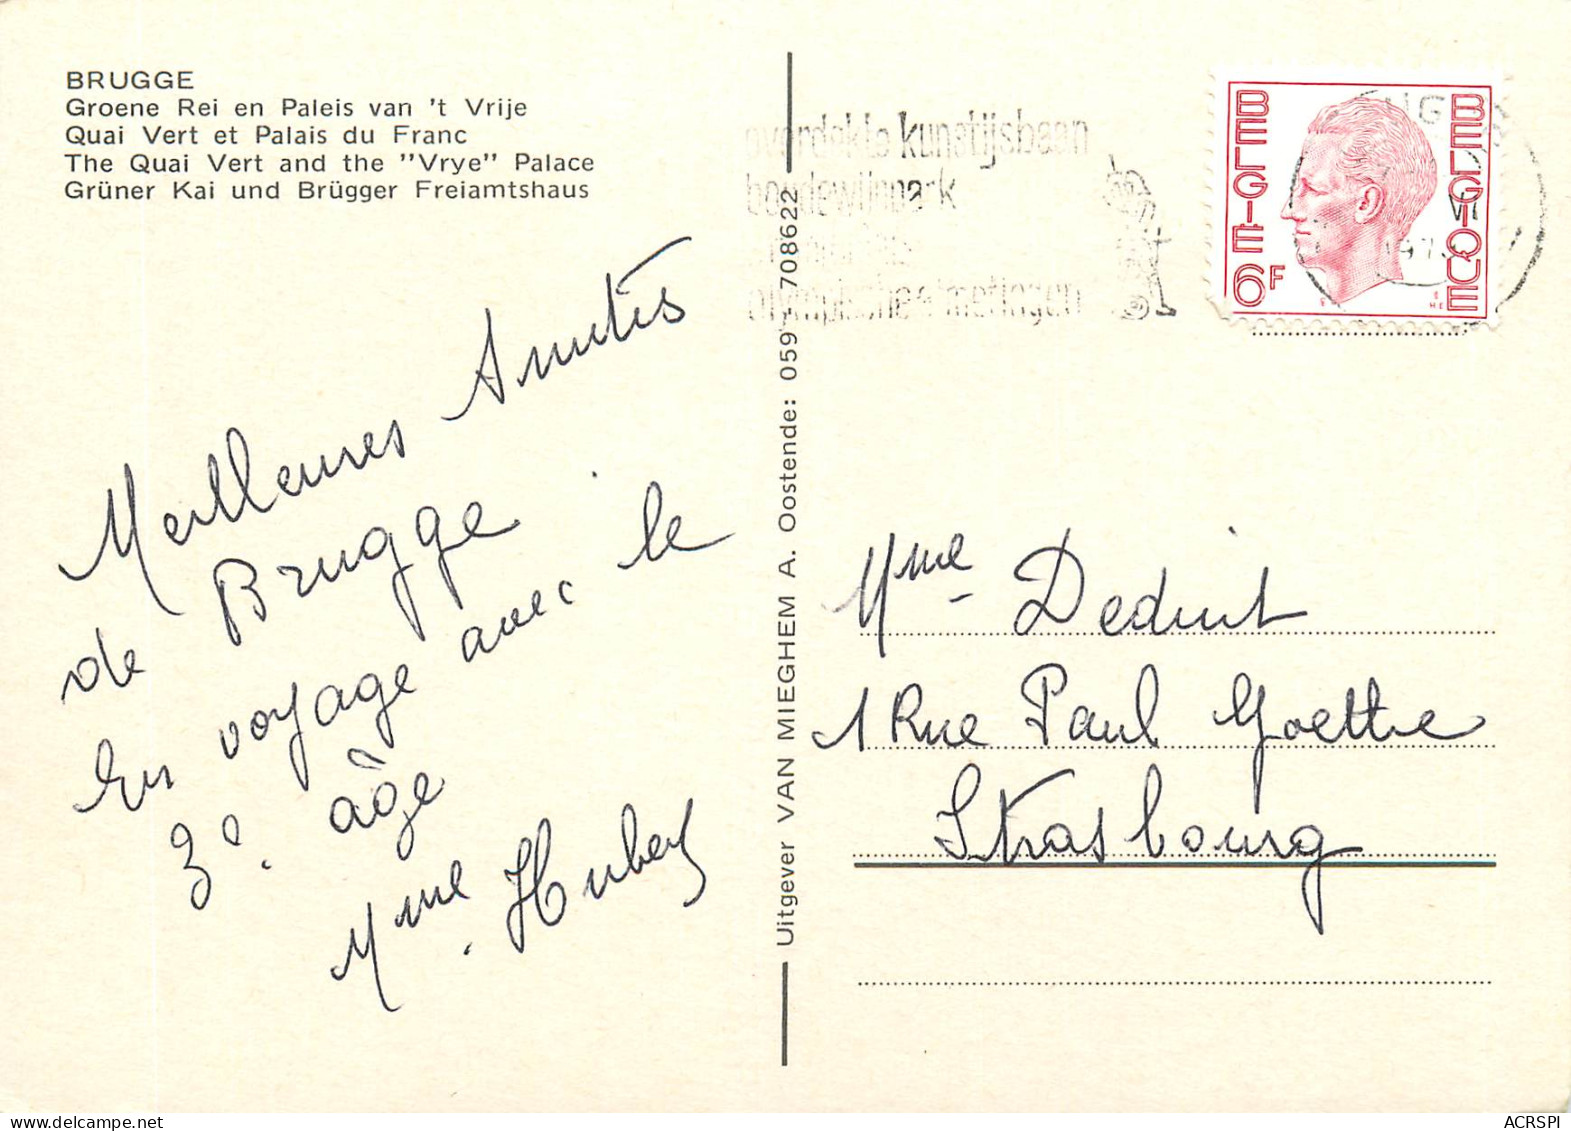 BRUGGE
Groene Rei en Paleis van 't Vrije
Quai Vert et Palais du Franc
The Quai Vert and the "Vrye" Palace
Grüner Kai und Brügger Freiamtshaus
Meilleures Amitiés
de Brugge
En voyage avec le
3e. âge
Mme. Hubert
Uitgever VAN MIEGHEM A. Oostende: 059 - 708622
overdekte kunstijsbaan
boudewijnpark
olympische metingen
BELGIE BELGIQUE
6F
Mme Deduit
1 Rue Paul Goethe
Strasbourg
ACRSPI